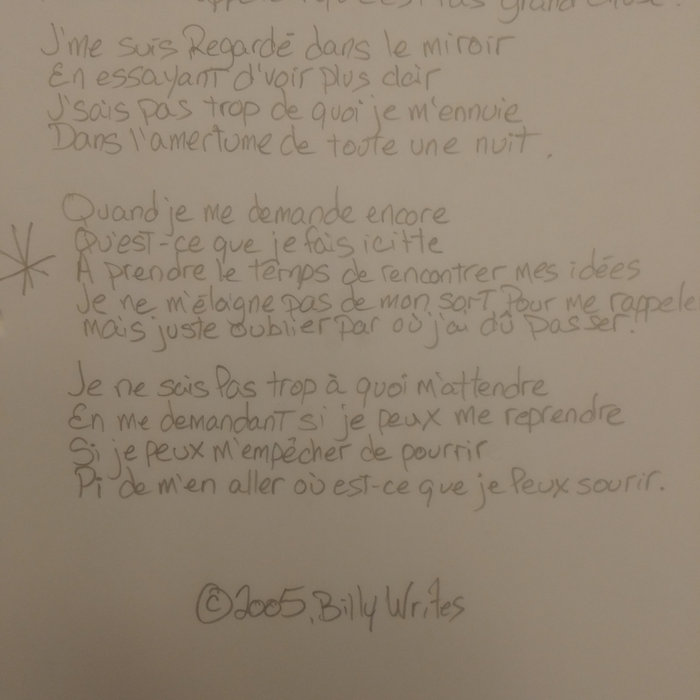 J'me suis Regardé dans le miroir
En essayant d'voir plus clair
J'sais pas trop de quoi je m'ennuie
Dans l'amertume de toute une nuit.
Quand je me demande encore
Qu'est-ce que je fais icitte
À prendre le temps de rencontrer mes idées
Je ne m'éloigne pas de mon sort Pour me rappele
mais juste oublier par où j'ai dû passer!
Je ne sais Pas trop à quoi m'attendre
En me demandant si je peux me reprendre
Si je peux m'empêcher de pourrir
Pi de m'en aller où est-ce que je Peux sourir.
©2005, Billy Writes